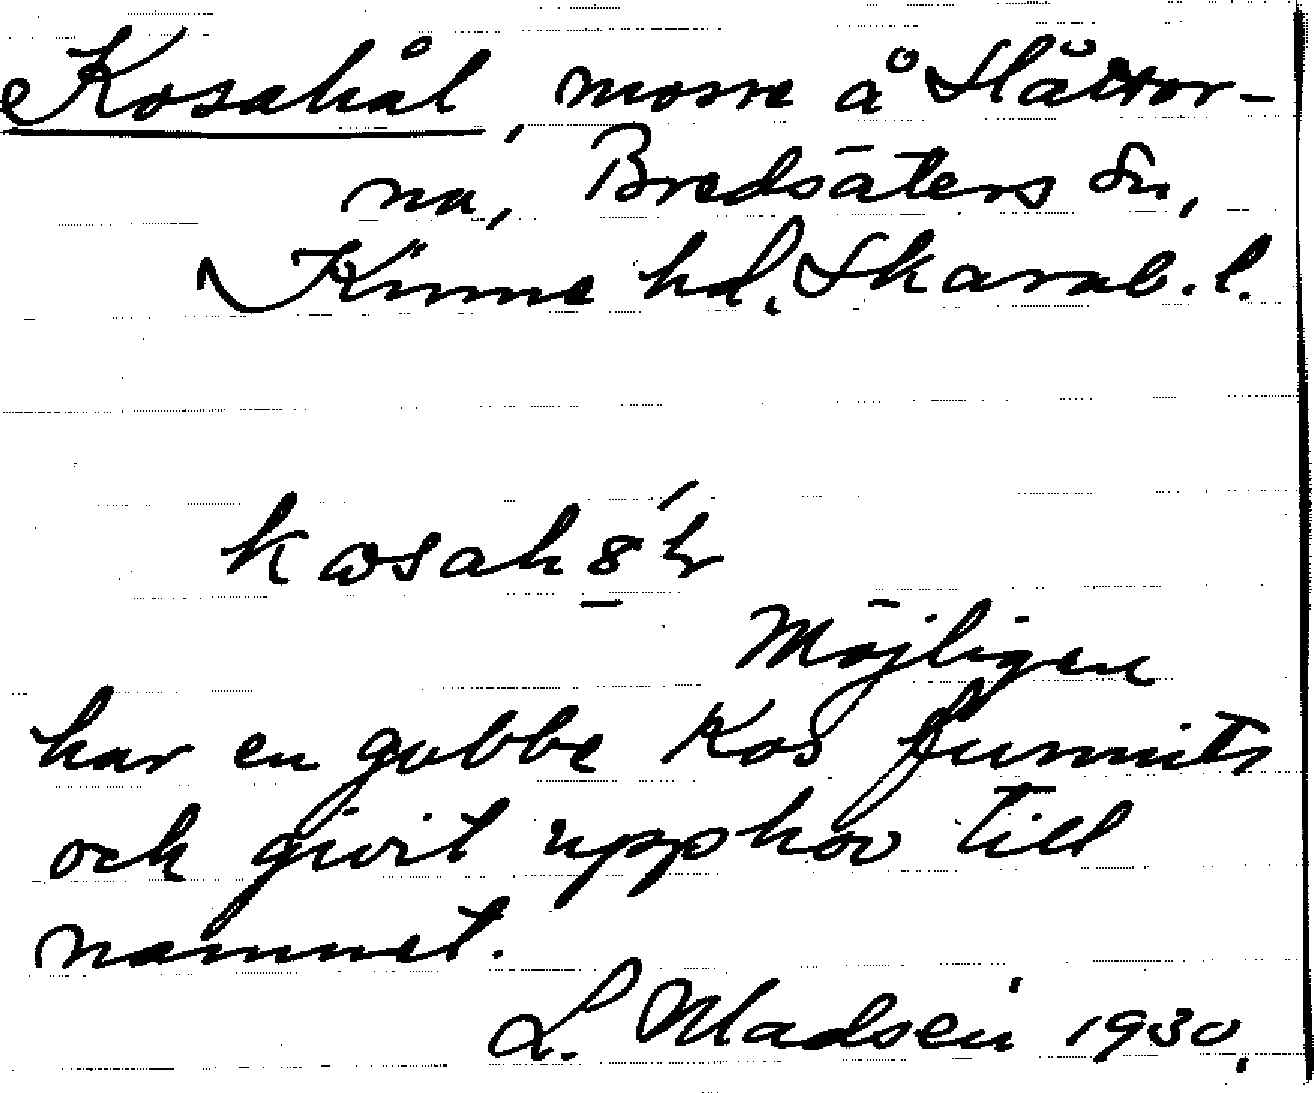 Kosahål, mosse å Slåttor-
na, Bredsäters sn,
Kinne hd, Skarab. l.
Möjligen
har en gubbe Kos funnits
och givit upphov till
namnet.
L. Madsén 1930.